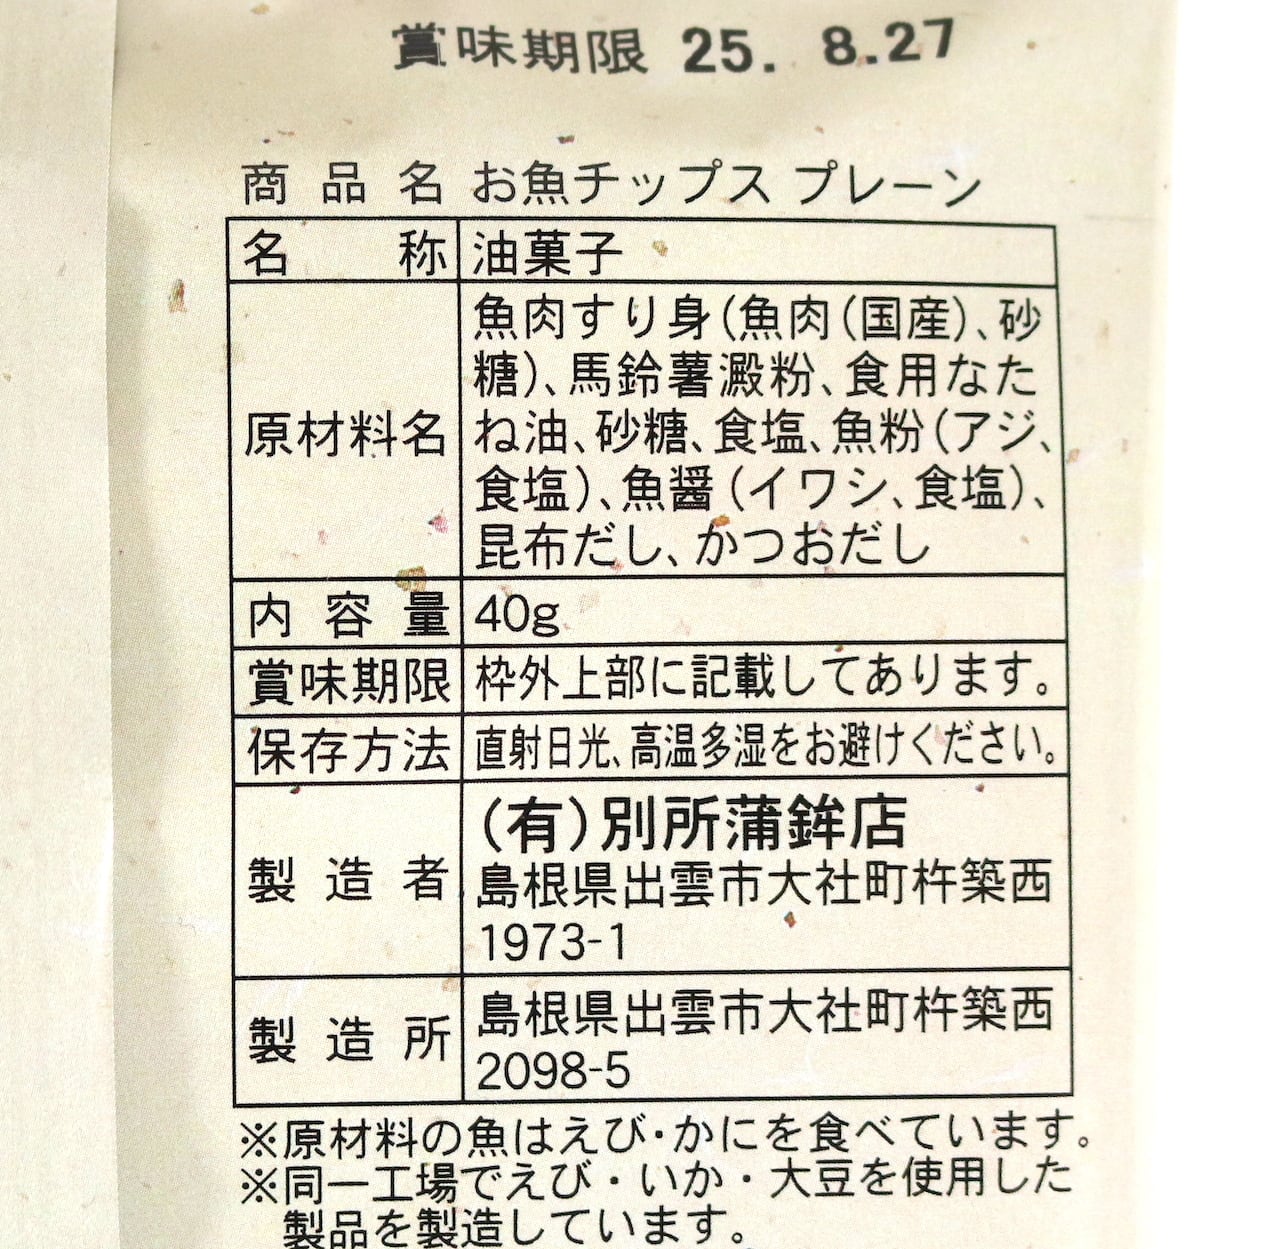 賞味期限 25. 8.27
商品名 お魚チップス プレーン
名称 油菓子
原材料名 魚肉すり身(魚肉(国産)、砂
糖)、馬鈴薯澱粉、食用なた
ね油、砂糖、食塩、魚粉(アジ、
食塩)、魚醤(イワシ、食塩)、
昆布だし、かつおだし
内容量 40g
賞味期限 枠外上部に記載してあります。
保存方法 直射日光、高温多湿をお避けください。
製造者 (有)別所蒲鉾店
島根県出雲市大社町杵築西
1973-1
製造所 島根県出雲市大社町杵築西
2098-5
※原材料の魚はえび・かにを食べています。
※同一工場でえび・いか・大豆を使用した
製品を製造しています。